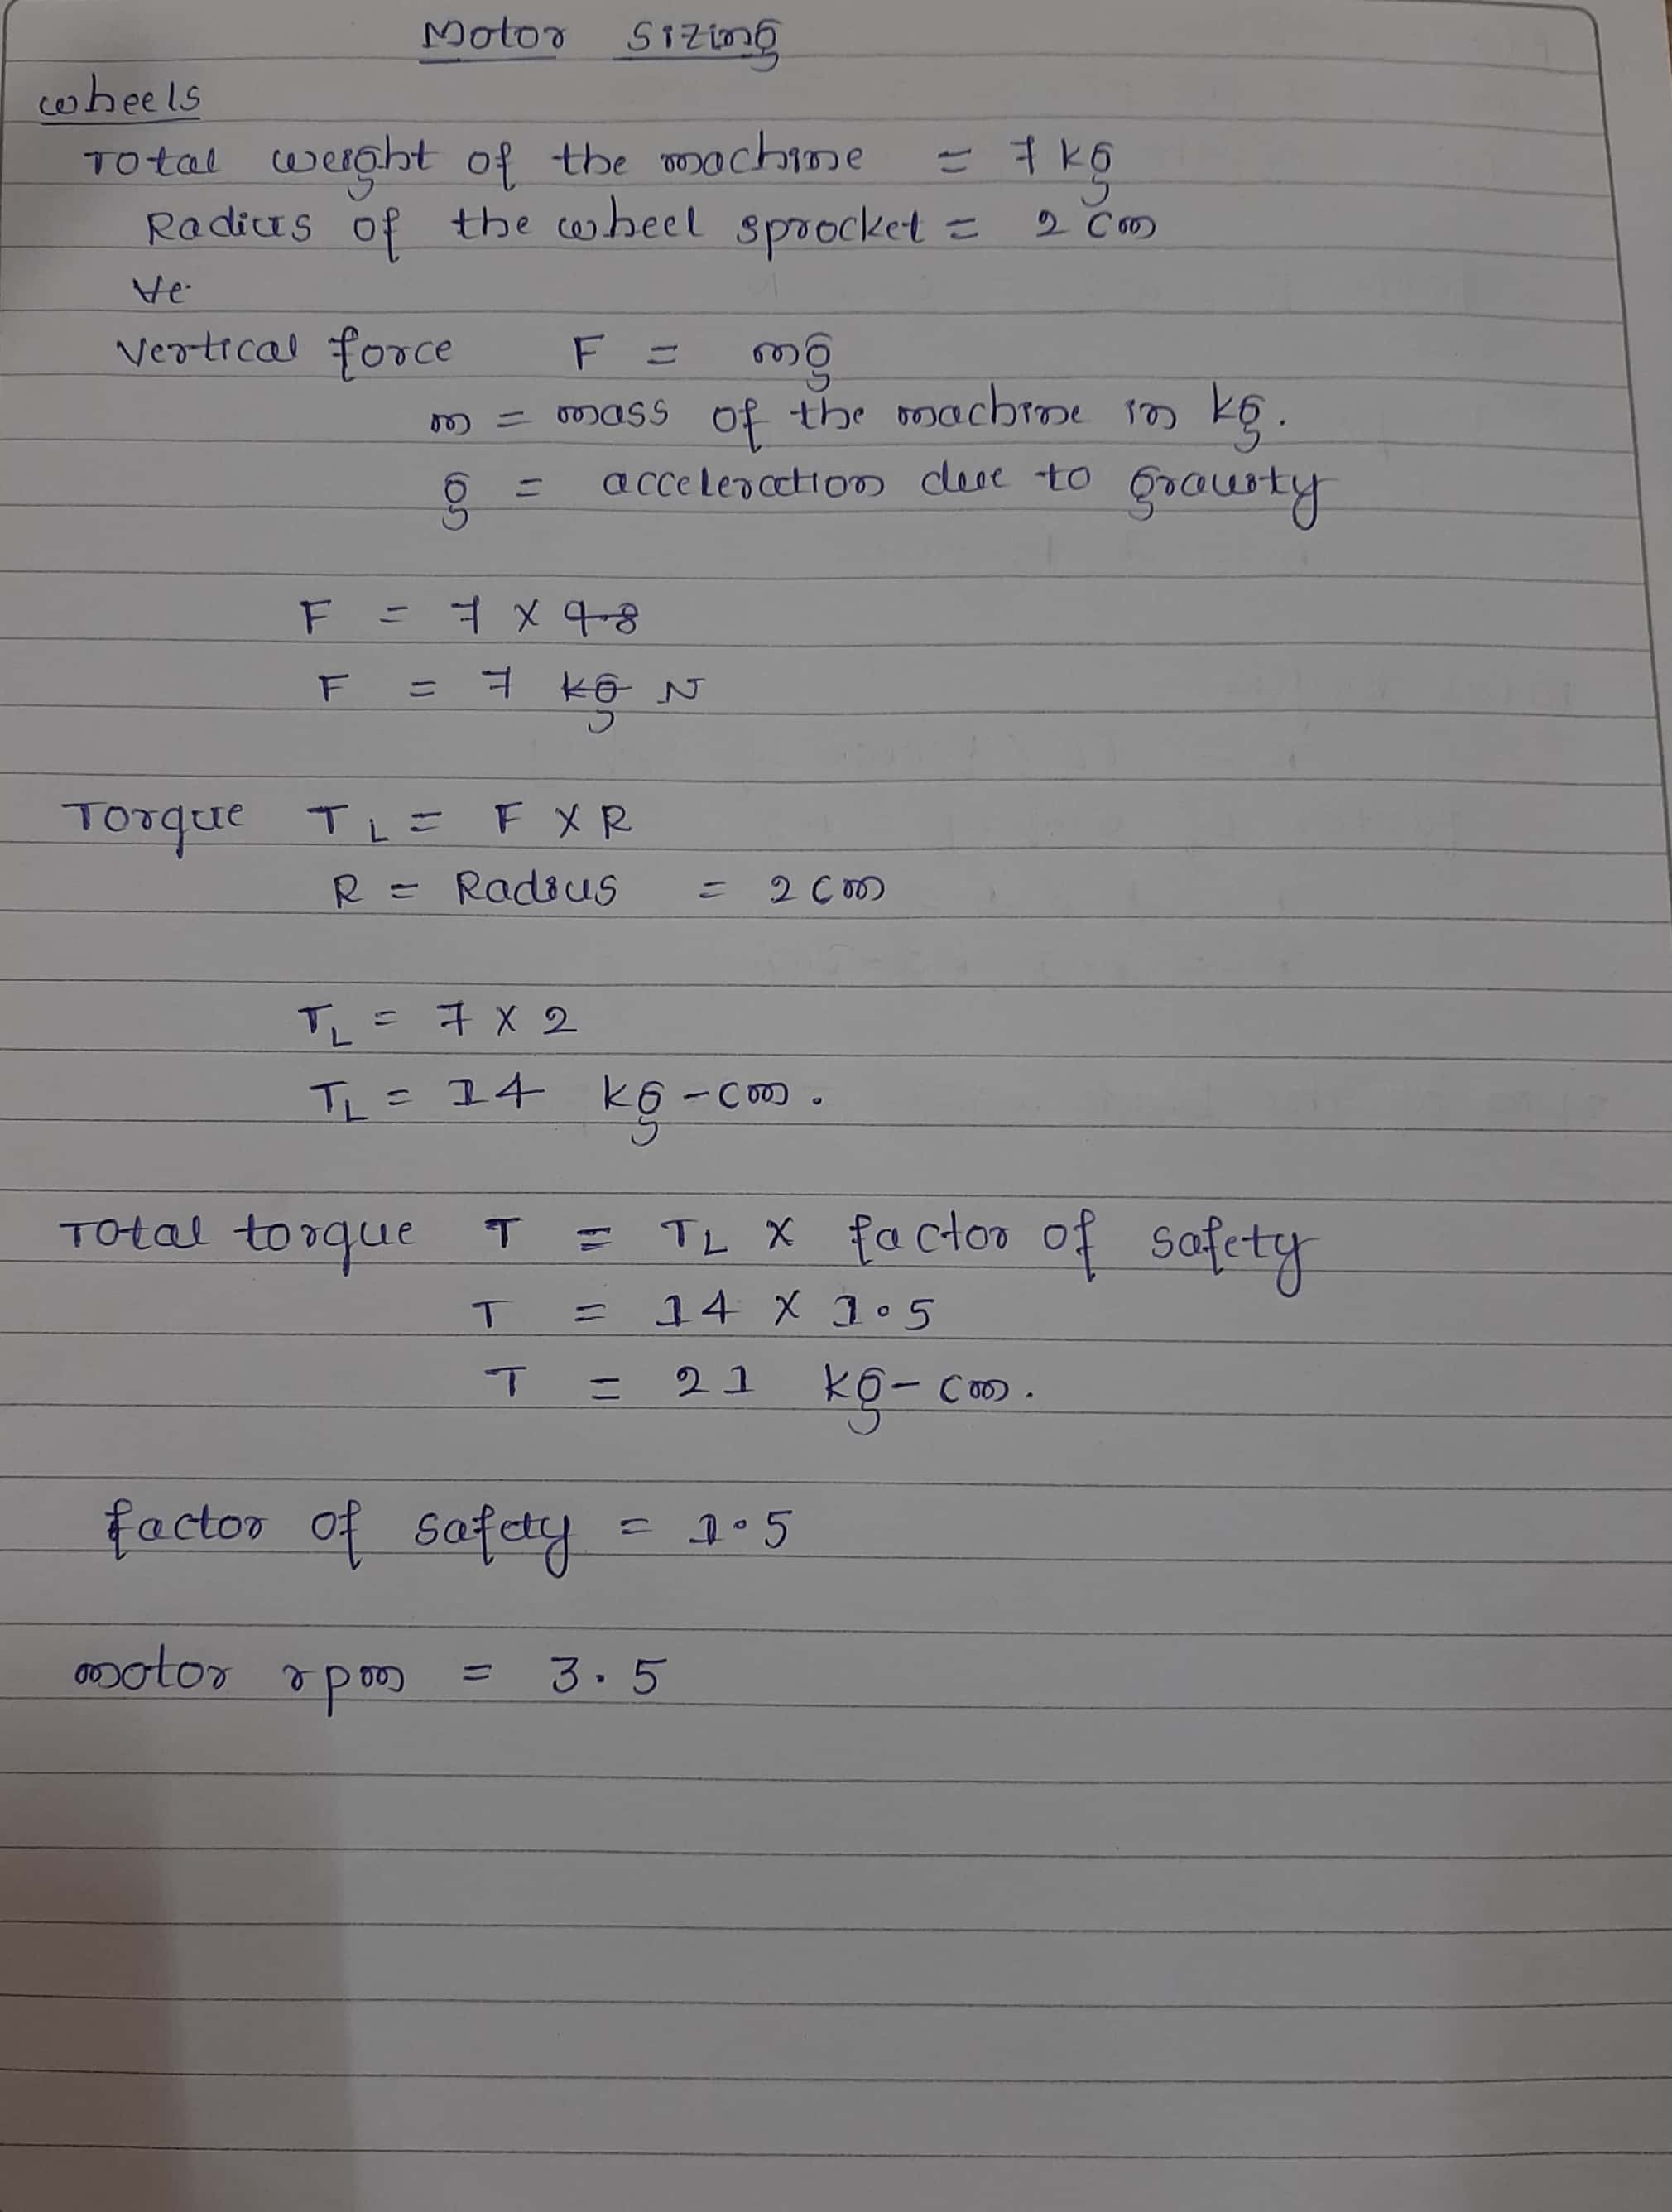 Motor sizing
wheels
Total weight of the machine = 7 kg
Radius of the wheel sprocket = 2 cm
Ve
Vertical force F = mg
m = mass of the machine in kg.
g = acceleration due to gravity
F = 7 x 9.8
F = 7 kg N
Torque TL = F x R
R = Radius = 2 cm
TL = 7 x 2
TL = 14 kg-cm.
Total torque T = TL x factor of safety
T = 14 x 1.5
T = 21 kg-cm.
factor of safety = 1.5
motor rpm = 3.5